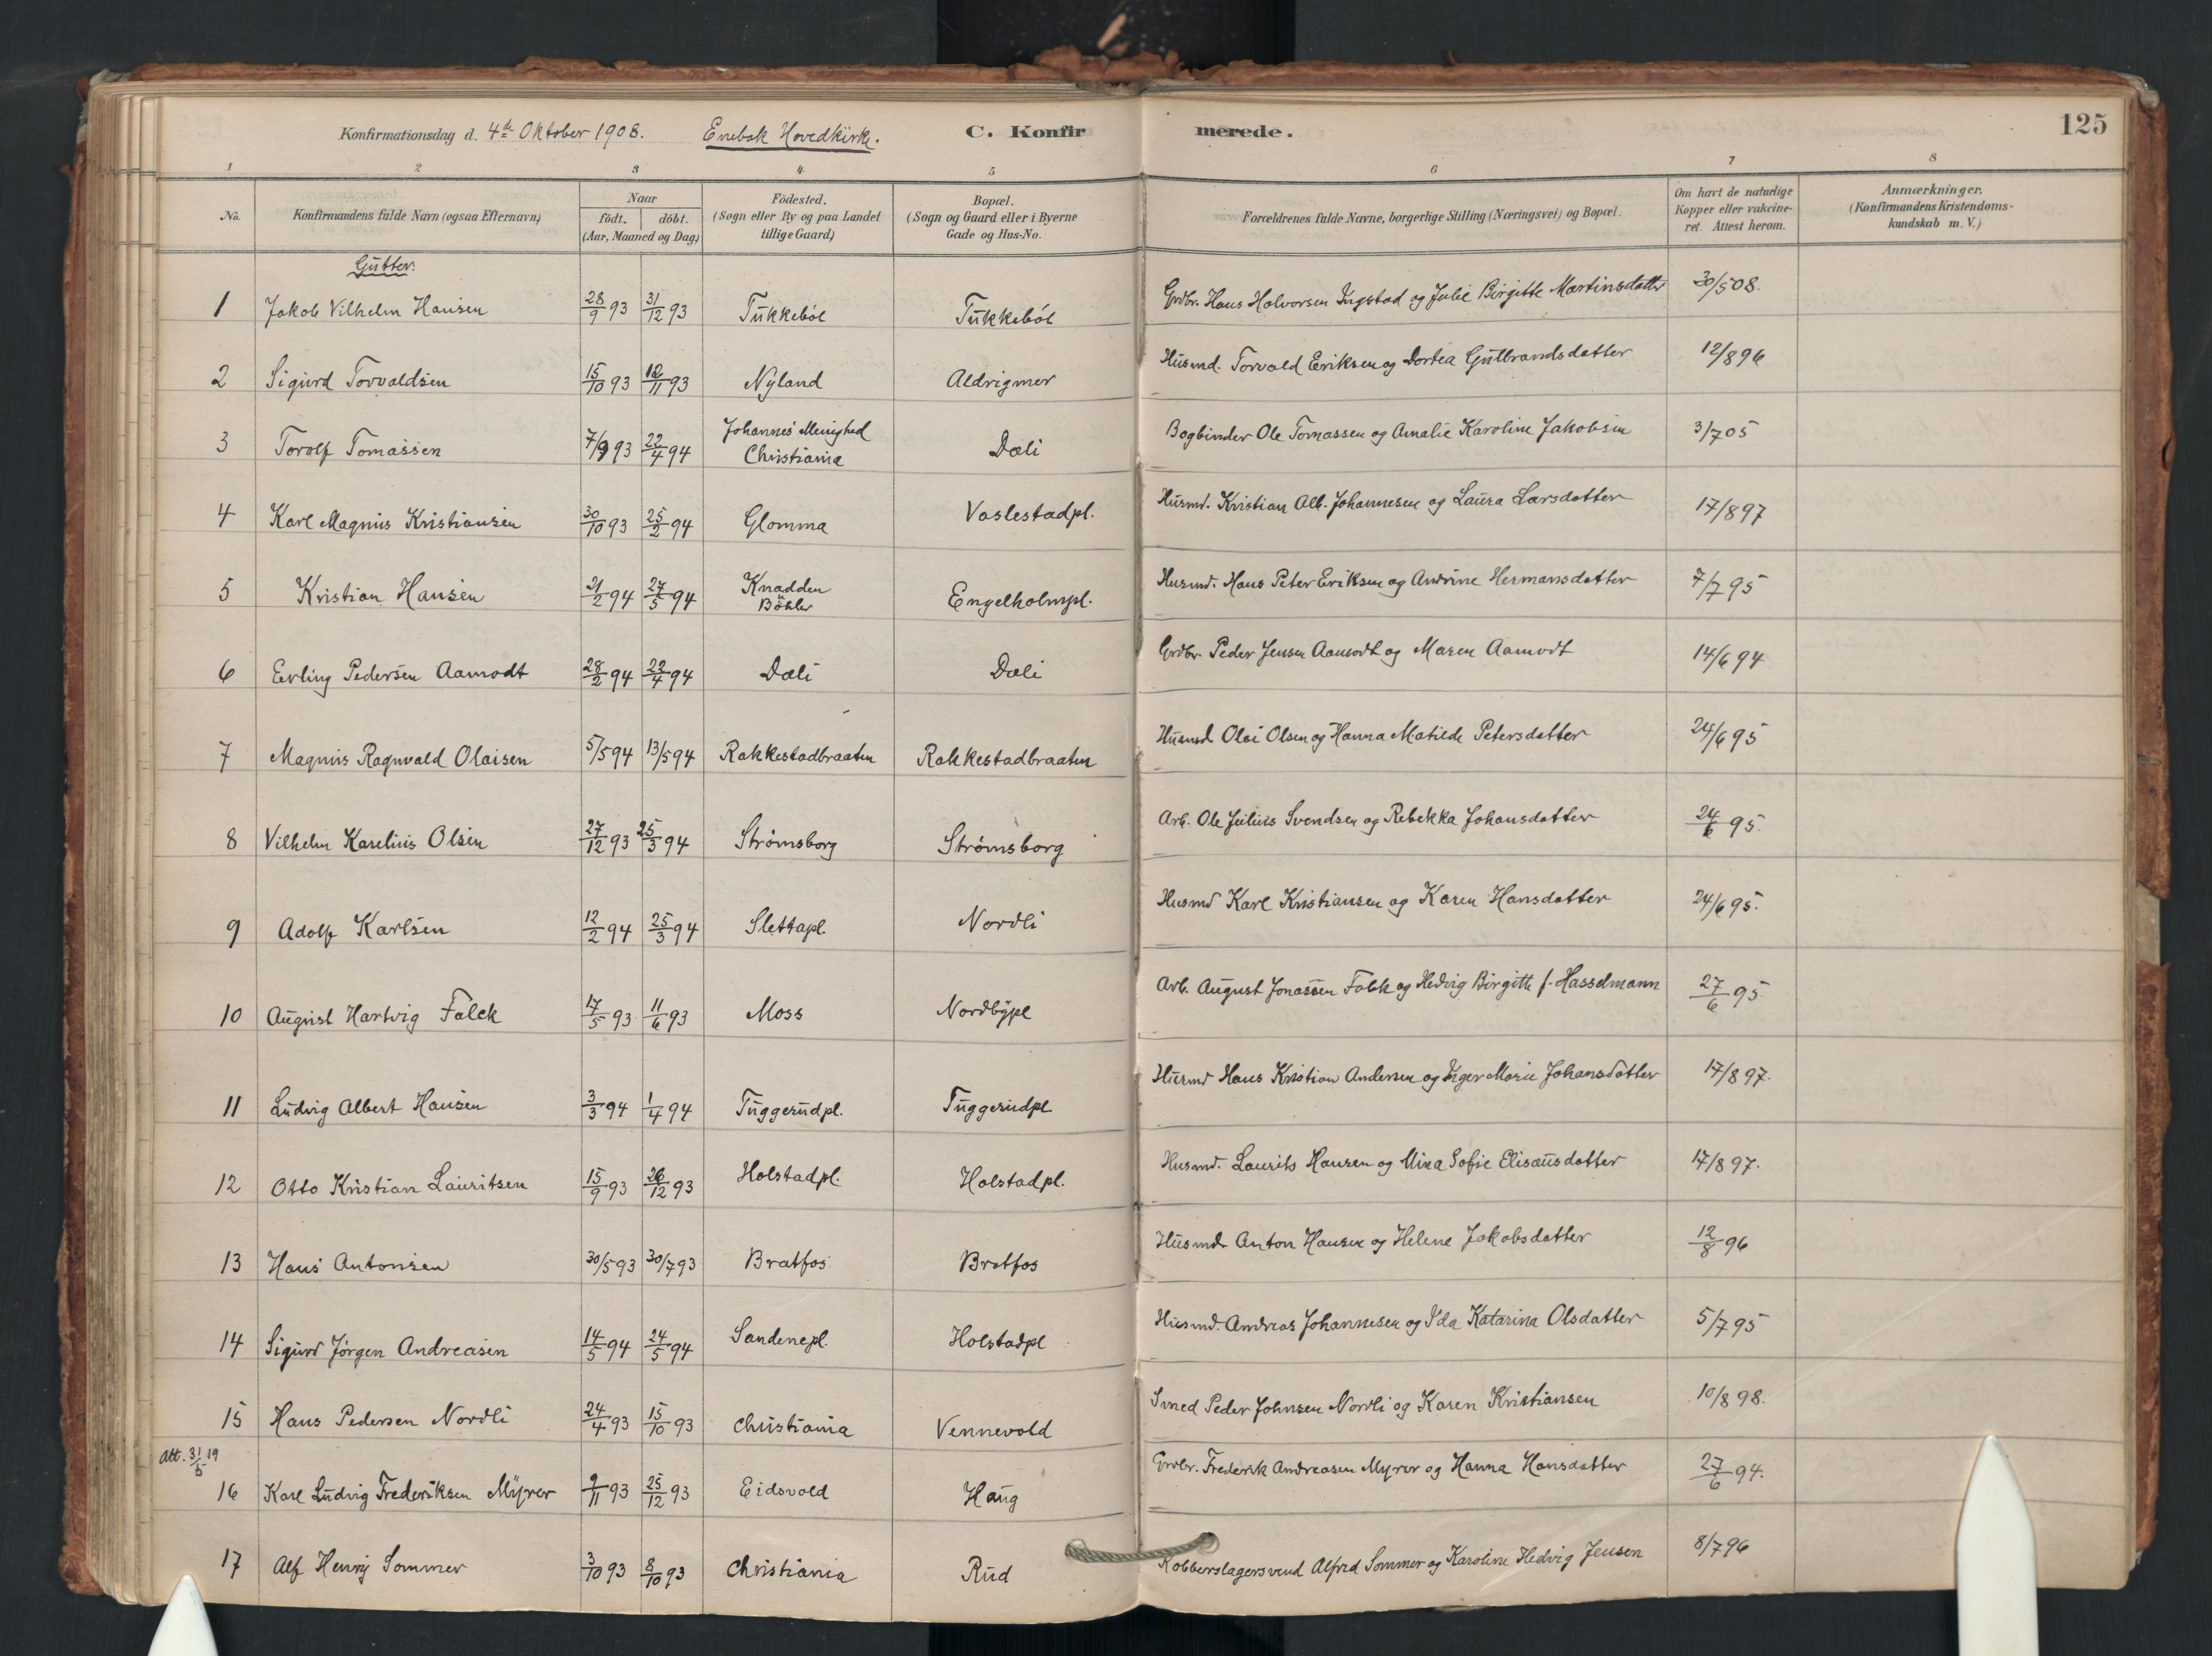 Konfirmationsdag d. 4de Oktober 1908. Enebak Hovedkirke. C. Konfirmerede. 125
1 2 3 4 5 6 7 8
No. Konfirmandens fulde Navn (ogsaa Efternavn) Naar födt. döbt. (Aar, Maaned og Dag) Födested. (Sogn eller By og paa Landet tillige Gaard) Bopæl. (Sogn og Gaard eller i Byerne Gade og Hus-No. Forældrenes fulde Navne, borgerlige Stilling (Næringsvei) og Bopæl. Om havt de naturlige Kopper eller vakcineret. Attest herom. Anmærkninger. (Konfirmandens Kristendomskundskab m. V.)
Gutter.
1 Jakob Vilhelm Hansen 28/9 93 31/12 93 Tukkeböl Tukkeböl Grdbr. Hans Halvorsen Ingstad og Julie Birgitte Martinsdatter 30/5 08.
2 Sigurd Torvaldsen 15/10 93 12/11 93 Nyland Aldrigmer Husmd. Torvald Eriksen og Dortea Gulbrandsdatter 12/8 96
3 Torolf Tomassen 7/9 93 22/4 94 Johannes Menighed Christiania Dæli Bogbinder Ole Tomassen og Amalie Karoline Jakobsen 3/7 05
4 Karl Magnus Kristiansen 30/10 93 25/2 94 Glomma Vaslestadpl. Husmd. Kristian Alb. Johannesen og Laura Larsdatter 17/8 97
5 Kristian Hansen 21/2 94 27/5 94 Knadden Böhler Engelholmpl. Husmd. Hans Peter Eriksen og Andrine Hermansdatter 7/7 95
6 Erling Pedersen Aamodt 28/2 94 22/4 94 Dæli Dæli Grdbr. Peder Jensen Aamodt og Maren Aamodt 14/6 94
7 Magnus Ragnvald Olaisen 5/5 94 13/5 94 Rakkestadbraaten Rakkestadbraaten Husmd Olai Olsen og Hanna Matilde Petersdatter 24/6 95
8 Vilhelm Karelius Olsen 27/12 93 25/3 94 Strømsborg Strømsborg Arb. Ole Julius Svendsen og Rebekka Johansdatter 24/6 95.
9 Adolf Karlsen 12/2 94 25/3 94 Slettapl. Nordli Husmd Karl Kristiansen og Karen Hansdatter 24/6 95.
10 August Hartvig Falck 17/5 93 11/6 93 Moss Nordbypl Arb. August Jonassen Falck og Hedvig Birgitte f. Hasselmann 27/6 95.
11 Ludvig Albert Hansen 3/3 94 1/4 94 Tuggerudpl. Tuggerudpl. Husmd Hans Kristian Andersen og Inger Marie Johansdatter 17/8 97.
12 Otto Kristian Lauritsen 15/9 93 26/12 93 Holstadpl. Holstadpl. Husmd. Laurits Hansen og Mina Sofie Elisæusdatter 17/8 97.
13 Hans Antonsen 30/5 93 30/7 93 Bratfos Bratfos Husmd Anton Hansen og Helene Jakobsdatter 12/8 96
14 Sigurd Jörgen Andreasen 14/5 94 24/5 94 Sandenepl. Holstadpl Husmd. Andreas Johannesen og Ida Katarina Olsdatter 5/7 95
15 Hans Pedersen Nordli 24/4 93 15/10 93 Christiania Vennevold Smed Peder Johnsen Nordli og Karen Kristiansen 10/8 98.
Att. 31/5 19
16 Karl Ludvig Frederiksen Myrer 9/11 93 25/12 93 Eidsvold Haug Grdbr. Frederik Andreasen Myrer og Hanna Hansdatter 27/6 94.
17 Alf Henry Sommer 3/10 93 8/10 93 Christiania Rud Kobberslagersvend Alfred Sommer og Karoline Hedvig Jensen 8/7 96